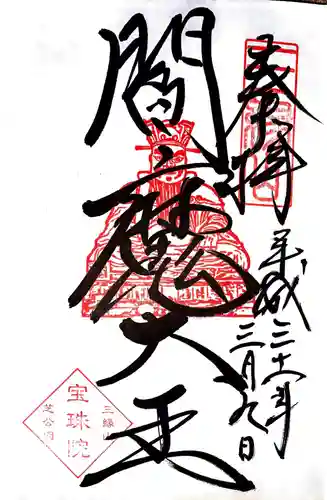 奉拝
平成三十一年
三月九日
閻魔大王
三縁山
宝珠院
芝公園